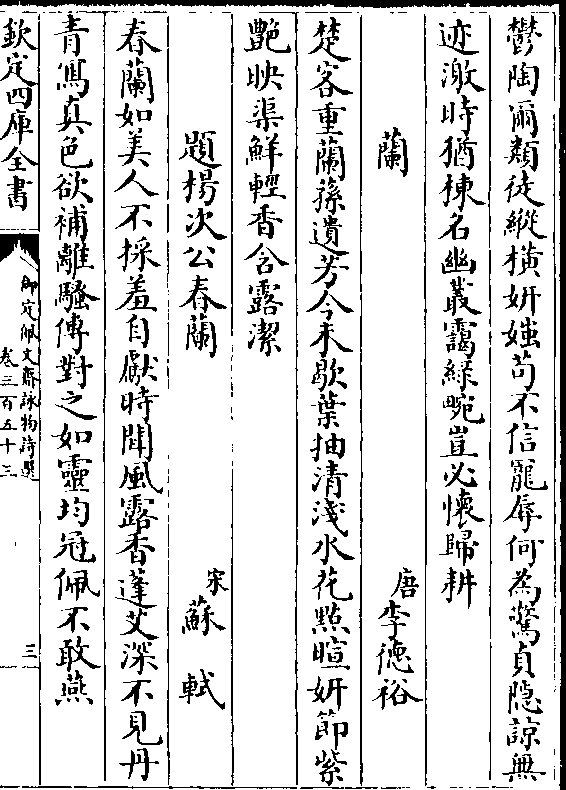 鬱陶爾類徒縱横妍媸苟不信寵辱何為驚貞隠諒無
迹激時猶揀名幽叢靄緑畹豈必懐歸耕
蘭
唐李德裕
楚客重蘭蓀遺芳今未歇葉抽清淺水花㸃暄妍節紫
艶映渠鮮輕香含露潔
題楊次公春蘭
宋蘇軾
春蘭如美人不採羞自獻時聞風露香蓬艾深不見丹
青寫真色欲補離騷傳對之如靈均冠佩不敢燕
欽定四庫全書
御定佩文齋詠物詩選
卷三百五十三
三